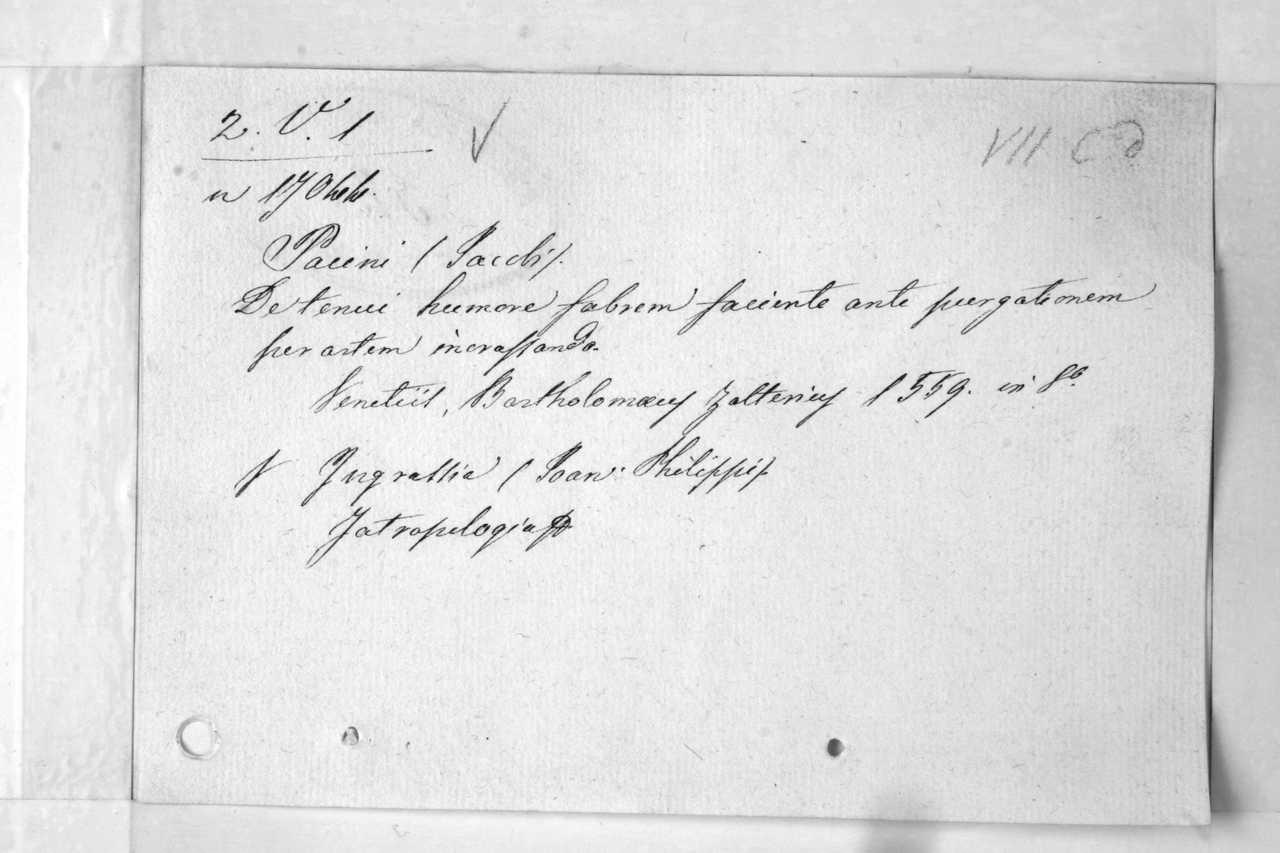 2. V. 1
VII C d
n 170
Pacini (Jacobi).
De tenui humore fabrem faciente ante purgationem
per artem incrassando.
Venetiis, Bartholomæus Zalterius 1559. in 8º
Ingrassia (Joan: Philippi)
Jatropologia